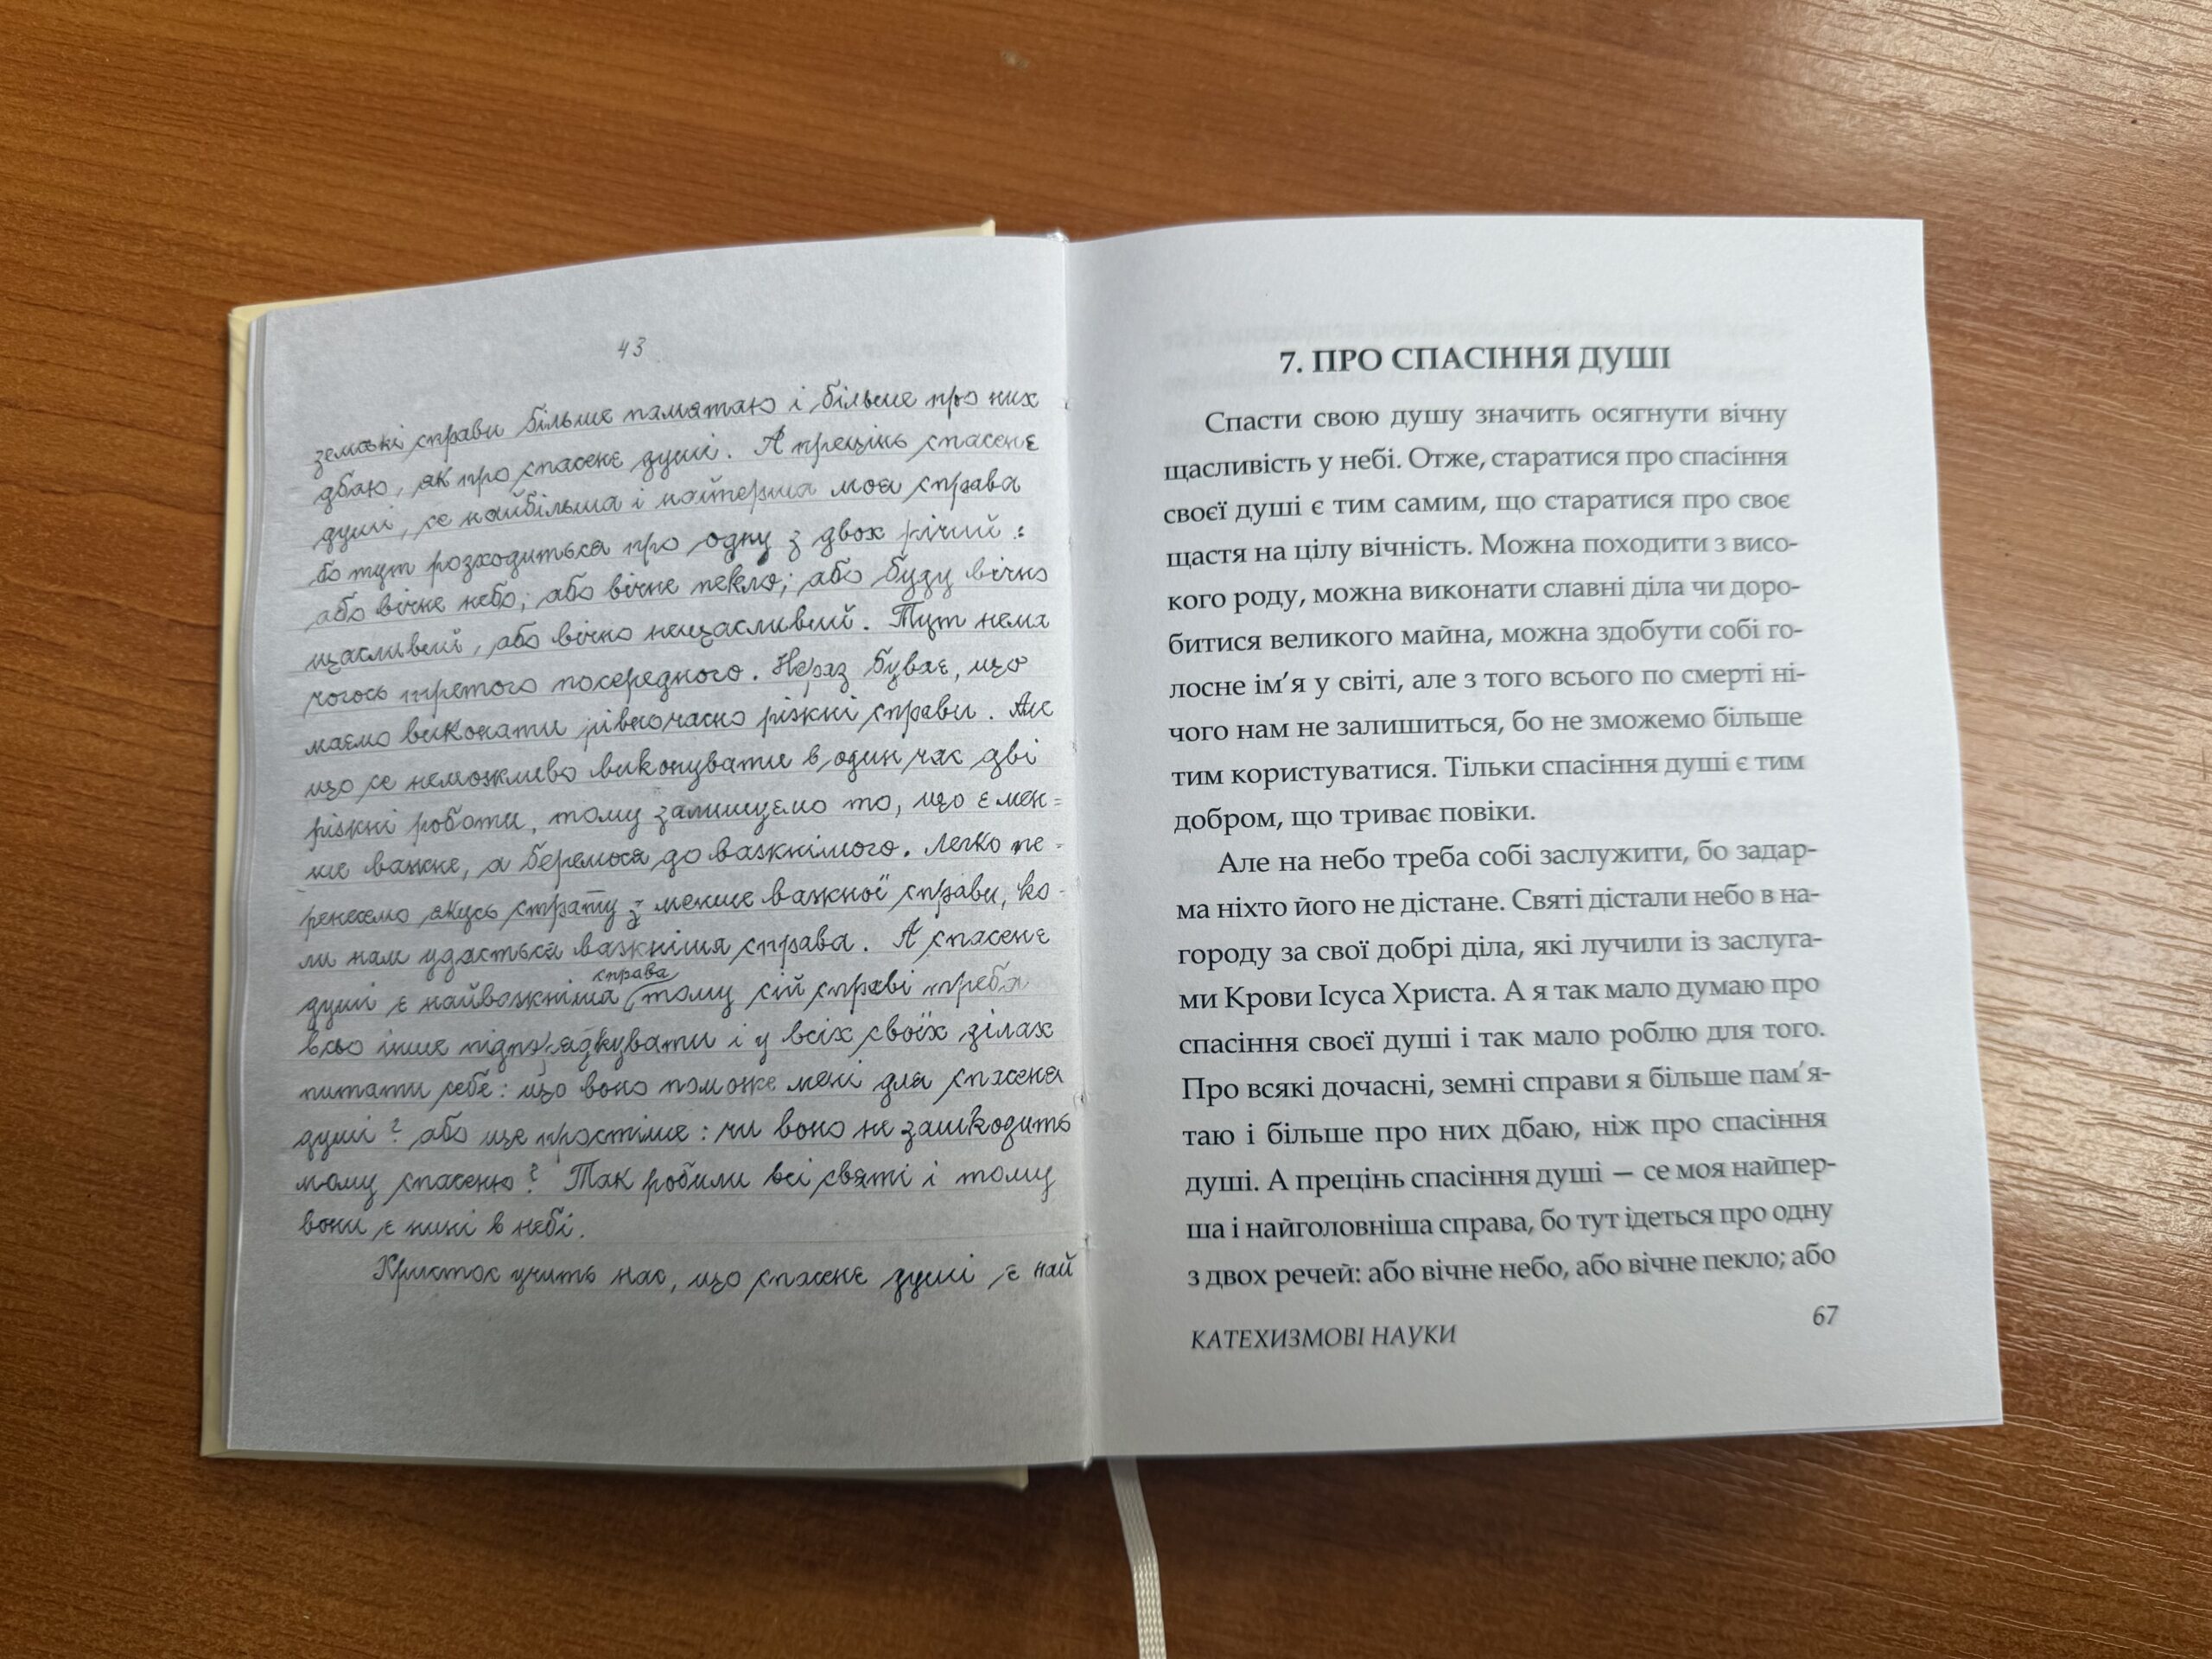 43
земскі справи більше памятаю і більше про них
дбаю, як про спасенє душі. А прецінь спасенє
душі, се найбільша і найперша моя справа
бо тут розходиться про одну з двох річий:
або вічне небо; або вічне пекло; або буду вічно
щасливий, або вічно нещасливий. Тут нема
чогось третого посередного. Нераз буває, що
маємо виконати рівночасно ріжні справи. Але
що се неможливо виконувати в один час дві
ріжні роботи, тому залишуємо то, що є мен=
ше важне, а беремося до важнішого. Легко пе=
ренесемо якусь страту з менше важної справи, ко-
ли нам удасться важніша справа. А спасенє
справа
душі є найважніша тому сій справі треба
всьо інше підпорядкувати і у всіх своїх ділах
питати себе: що воно поможе мені для спасеня
душі? або ще простіше: чи воно не зашкодить
мому спасеню? Так робили всі святі і тому
вони є нині в небі.
Христос учить нас, що спасенє душі є най
7. ПРО СПАСІННЯ ДУШІ
Спасти свою душу значить осягнути вічну
щасливість у небі. Отже, старатися про спасіння
своєї душі є тим самим, що старатися про своє
щастя на цілу вічність. Можна походити з висо-
кого роду, можна виконати славні діла чи доро-
битися великого майна, можна здобути собі го-
лосне ім’я у світі, але з того всього по смерті ні-
чого нам не залишиться, бо не зможемо більше
тим користуватися. Тільки спасіння душі є тим
добром, що триває повіки.
Але на небо треба собі заслужити, бо задар-
ма ніхто його не дістане. Святі дістали небо в на-
городу за свої добрі діла, які лучили із заслуга-
ми Крови Ісуса Христа. А я так мало думаю про
спасіння своєї душі і так мало роблю для того.
Про всякі дочасні, земні справи я більше пам’я-
таю і більше про них дбаю, ніж про спасіння
душі. А прецінь спасіння душі — се моя найпер-
ша і найголовніша справа, бо тут ідеться про одну
з двох речей: або вічне небо, або вічне пекло; або
КАТЕХИЗМОВІ НАУКИ
67